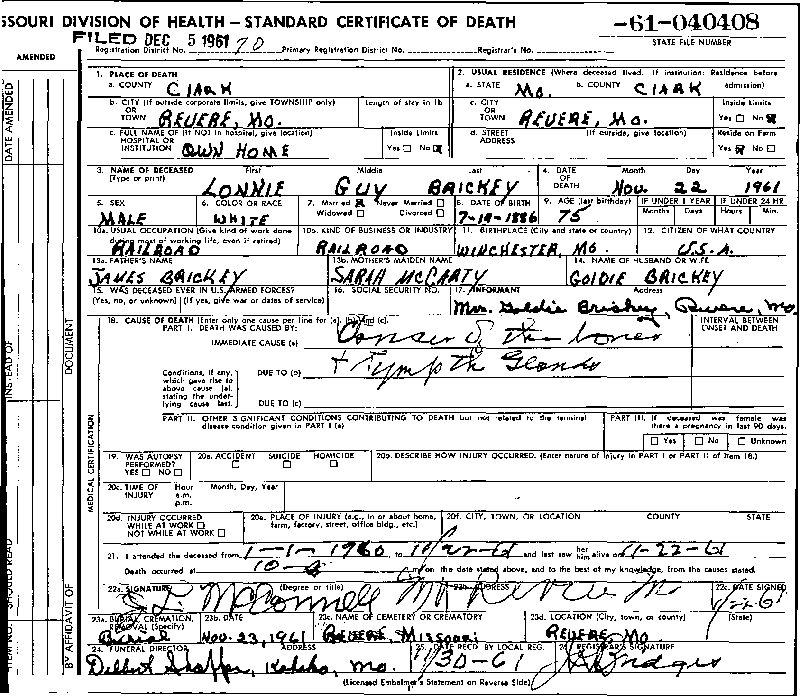 SSOURI DIVISION OF HEALTH – STANDARD CERTIFICATE OF DEATH -61-040408
FILED DEC 5 1961 70
Registration District No. Primary Registration District No. Registrar's No. STATE FILE NUMBER
AMENDED
DATE AMENDED
INSTEAD OF
DOCUMENT
ITEM NO. SHOULD READ
BY AFFIDAVIT OF
MEDICAL CERTIFICATION
1. PLACE OF DEATH 2. USUAL RESIDENCE (Where deceased lived. If institution: Residence before admission)
a. COUNTY CLARK a. STATE Mo. b. COUNTY CLARK
b. CITY (If outside corporate limits, give TOWNSHIP only) OR TOWN REVERE, Mo. Length of stay in 1b c. CITY OR TOWN REVERE, Mo. Inside Limits Yes No
c. FULL NAME OF (If NOT in hospital, give location) HOSPITAL OR INSTITUTION OWN HOME Inside Limits Yes No d. STREET ADDRESS (If outside, give location) Reside on Farm Yes No
3. NAME OF DECEASED (Type or print) First LONNIE Middle GUY Last BRICKEY 4. DATE OF DEATH Month Nov. Day 22 Year 1961
5. SEX MALE 6. COLOR OR RACE WHITE 7. Married Never Married Widowed Divorced 8. DATE OF BIRTH 7-19-1886 9. AGE (last birthday) 75 IF UNDER 1 YEAR Months Days IF UNDER 24 HR Hours Min.
10a. USUAL OCCUPATION (Give kind of work done during most of working life, even if retired) RAILROAD 10b. KIND OF BUSINESS OR INDUSTRY RAILROAD 11. BIRTHPLACE (City and state or country) WINCHESTER, Mo. 12. CITIZEN OF WHAT COUNTRY U.S.A.
13a. FATHER'S NAME JAMES BRICKEY 13b. MOTHER'S MAIDEN NAME SARAH McCARTY 14. NAME OF HUSBAND OR WIFE GOLDIE BRICKEY
15. WAS DECEASED EVER IN U.S. ARMED FORCES? (Yes, no, or unknown) (If yes, give war or dates of service) 16. SOCIAL SECURITY NO. 17. INFORMANT Address Mrs. Goldie Brickey, Revere, Mo.
18. CAUSE OF DEATH (Enter only one cause per line for (a), (b), and (c). INTERVAL BETWEEN ONSET AND DEATH
PART I. DEATH WAS CAUSED BY:
IMMEDIATE CAUSE (a) Cancer of the bones
Conditions, if any, which gave rise to above cause (a), stating the underlying cause last. DUE TO (b) + Lymph Glands
DUE TO (c)
PART II. OTHER SIGNIFICANT CONDITIONS CONTRIBUTING TO DEATH but not related to the terminal disease condition given in PART I (a) PART III. If deceased was female was there a pregnancy in last 90 days. Yes No Unknown
19. WAS AUTOPSY PERFORMED? YES NO 20a. ACCIDENT SUICIDE HOMICIDE 20b. DESCRIBE HOW INJURY OCCURRED. (Enter nature of injury in PART I or PART II of item 18.)
20c. TIME OF INJURY Hour a.m. p.m. Month, Day, Year
20d. INJURY OCCURRED WHILE AT WORK NOT WHILE AT WORK 20e. PLACE OF INJURY (e.g., in or about home, farm, factory, street, office bldg., etc.) 20f. CITY, TOWN, OR LOCATION COUNTY STATE
21. I attended the deceased from 1-1-1960 to 11/22-61 and last saw her him alive on 11-22-61
Death occurred at m on the date stated above, and to the best of my knowledge, from the causes stated.
22a. SIGNATURE (Degree or title) McConnell 22b. ADDRESS Revere Mo 22c. DATE SIGNED
23a. BURIAL, CREMATION, REMOVAL (Specify) Burial 23b. DATE Nov. 23, 1961 23c. NAME OF CEMETERY OR CREMATORY REVERE, Missouri 23d. LOCATION (City, town, or county) (State) REVERE Mo.
24. FUNERAL DIRECTOR ADDRESS Delbert Shaffer, Kahoka, Mo. 25. DATE RECD BY LOCAL REG. 11/30-61 26. REGISTRAR'S SIGNATURE
(Licensed Embalmer's Statement on Reverse Side)